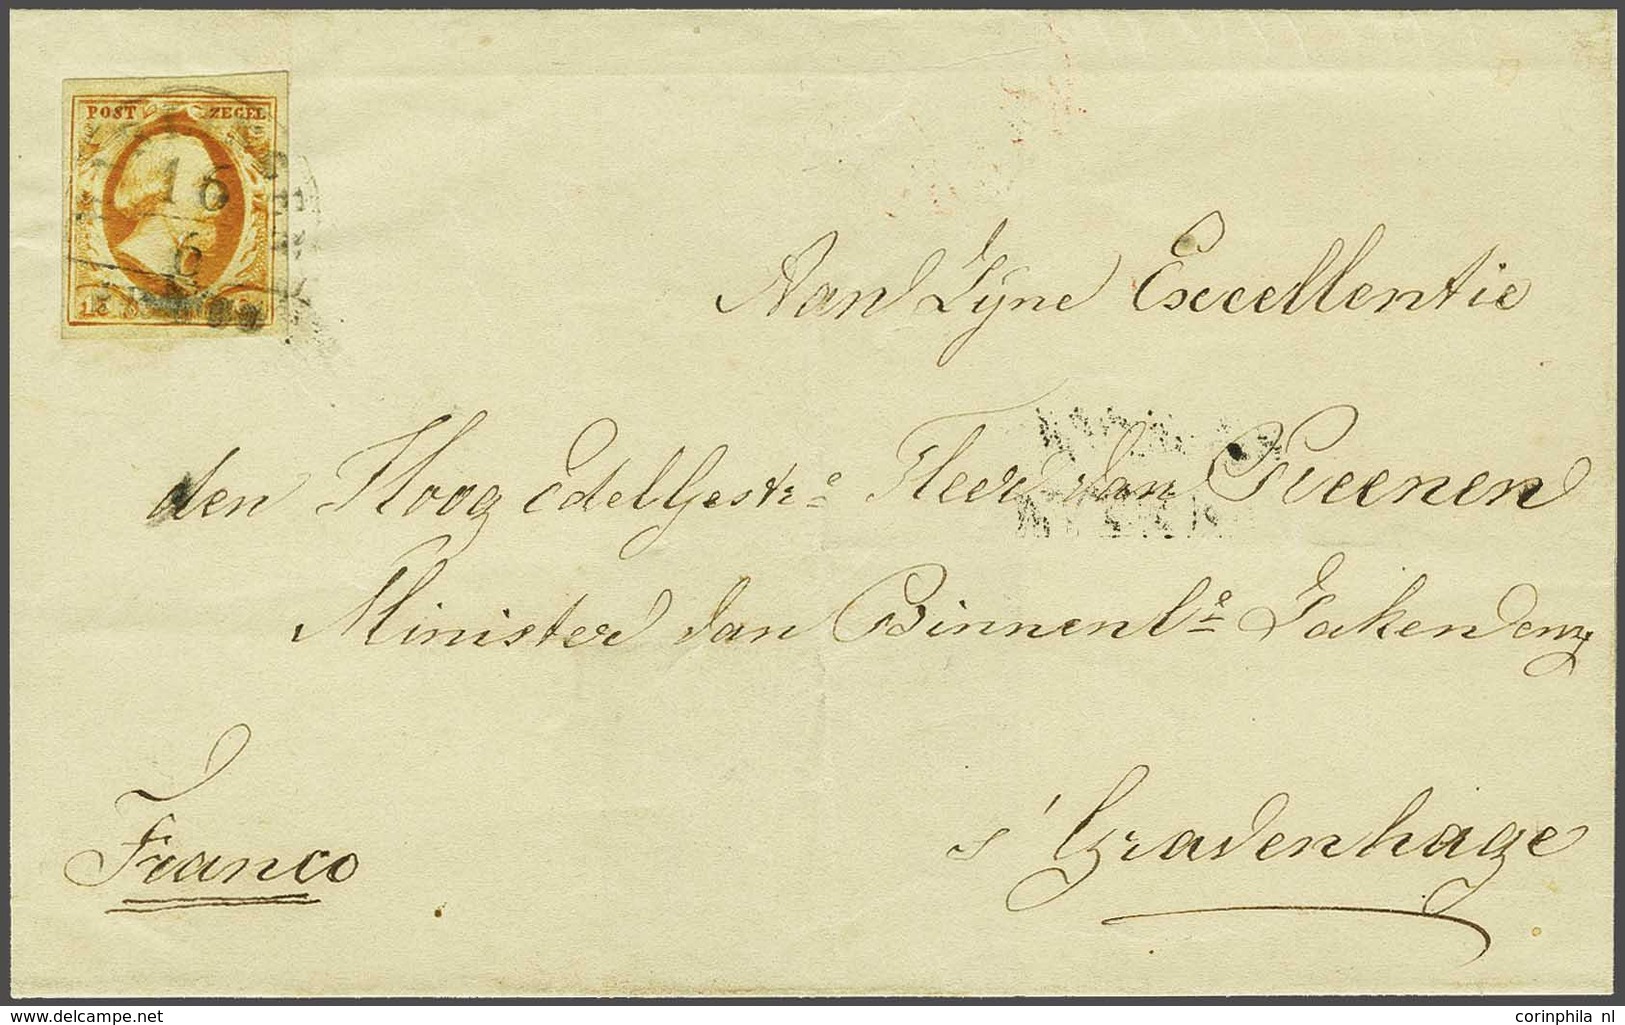 POST ZEGEL
16
6
15
Aan Zyne Excellentie
den Hoog EdelGestr e Heer van Reenen
Minister van Binnenl e Zaken enz
Franco
s' Gravenhage
delcampe.net
corinphila nl